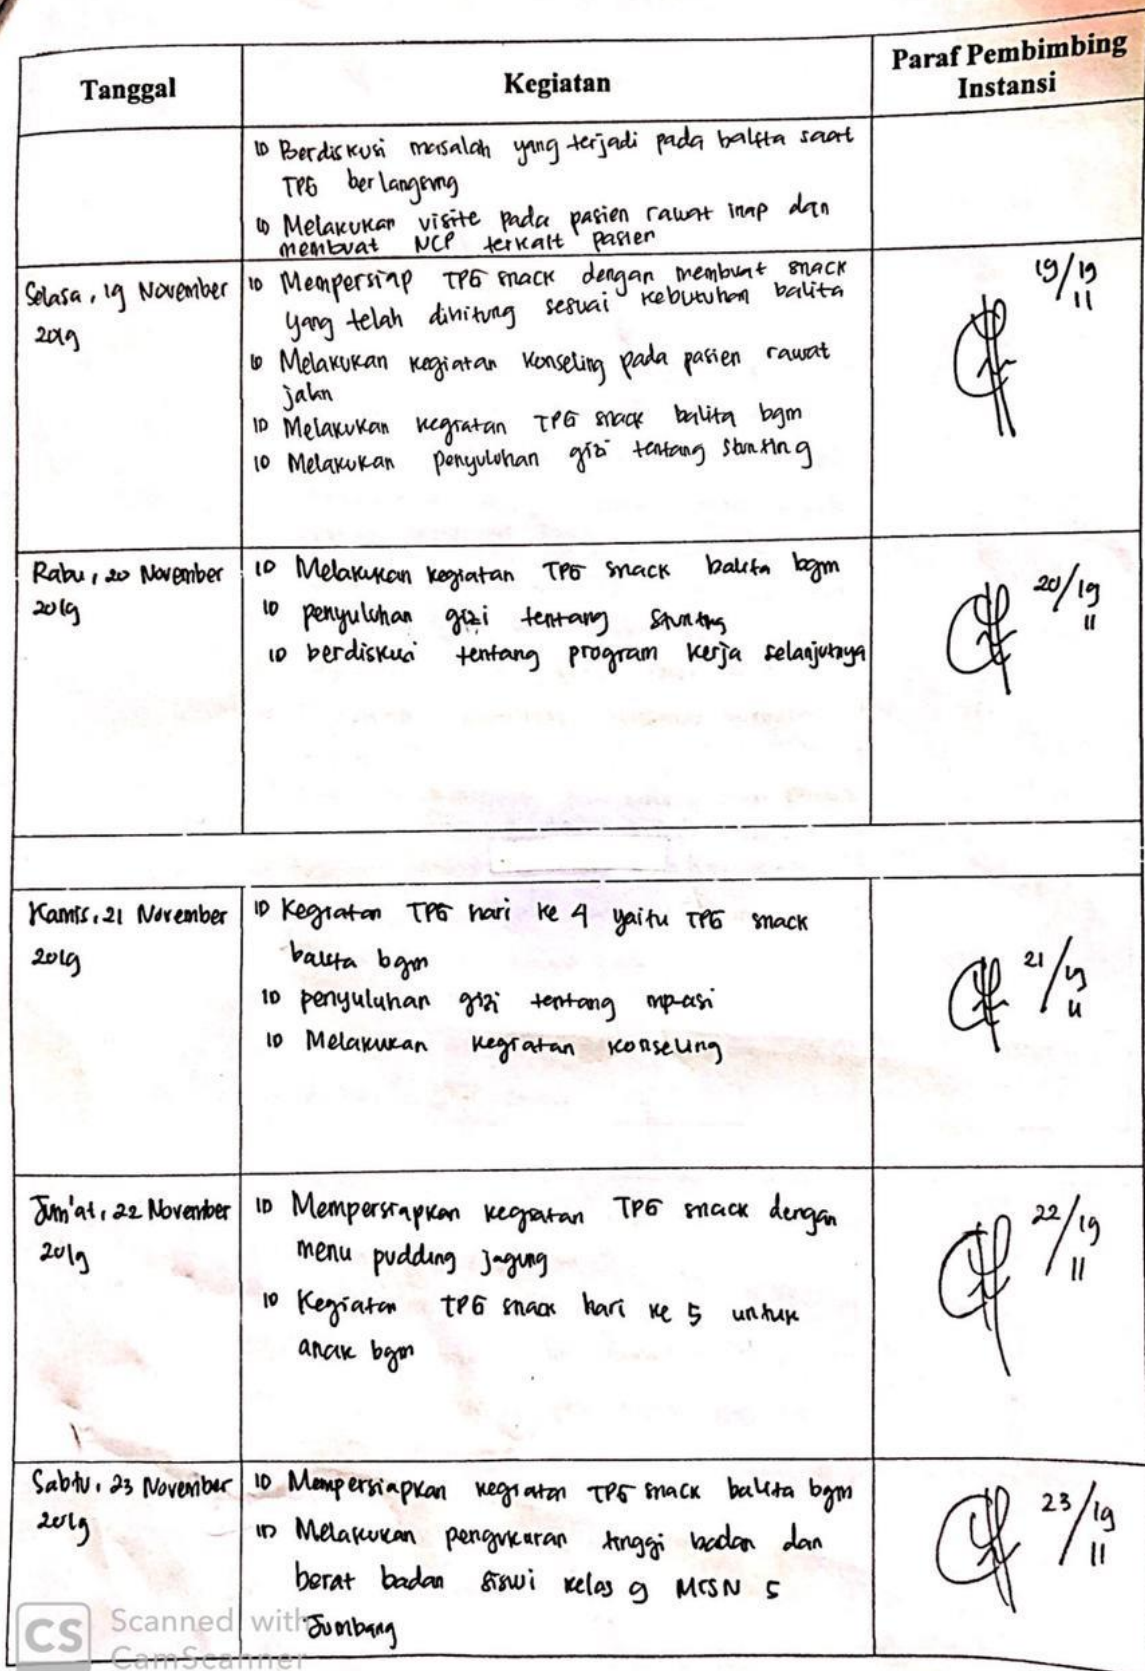 Tanggal
Kegiatan
Paraf Pembimbing
Instansi
10 Berdiskusi masalah yang terjadi pada balita saat
TPG berlangsung
10 Melakukan visite pada pasien rawat inap dan
membuat NCP terkait pasien
Selasa, 19 November
2019
10 Mempersiap TPG snack dengan membuat snack
yang telah dihitung sesuai kebutuhan balita
10 Melakukan kegiatan konseling pada pasien rawat
jalan
10 Melakukan kegiatan TPG snack balita bgm
10 Melakukan penyuluhan gizi tentang stunting
19/19
11
Rabu, 20 November
2019
10 Melakukan kegiatan TPG snack balita bgm
10 penyuluhan gizi tentang stunting
10 berdiskusi tentang program kerja selanjutnya
20/19
11
Kamis, 21 November
2019
10 Kegiatan TPG hari ke 4 yaitu TPG snack
balita bgm
10 penyuluhan gizi tentang mp-asi
10 Melakukan kegiatan konseling
21/19
11
Jum'at, 22 November
2019
10 Mempersiapkan kegiatan TPG snack dengan
menu pudding jagung
10 Kegiatan TPG snack hari ke 5 untuk
anak bgm
22/19
11
Sabtu, 23 November
2019
10 Mempersiapkan kegiatan TPG snack balita bgm
10 Melakukan pengukuran tinggi badan dan
berat badan siswi kelas 9 MTSN 5
Jombang
23/19
11
CS Scanned with
CamScanner